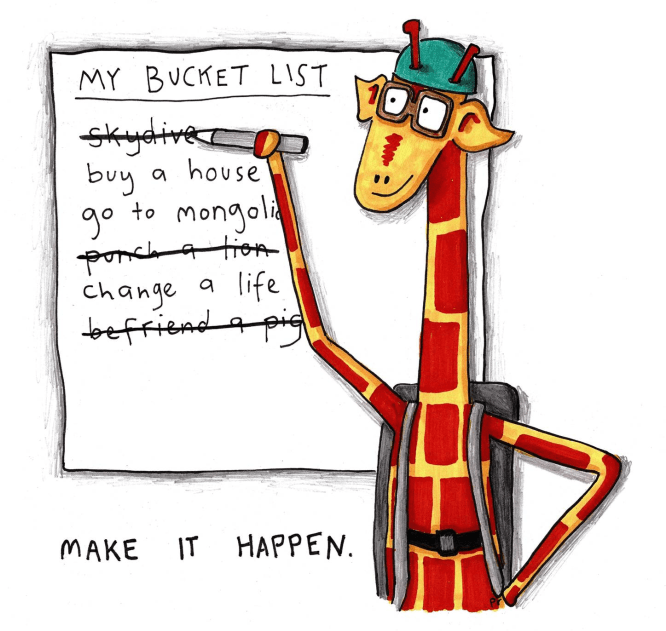 MY BUCKET LIST
skydive
buy a house
go to mongolia
punch a lion
change a life
befriend a pig
MAKE IT HAPPEN.